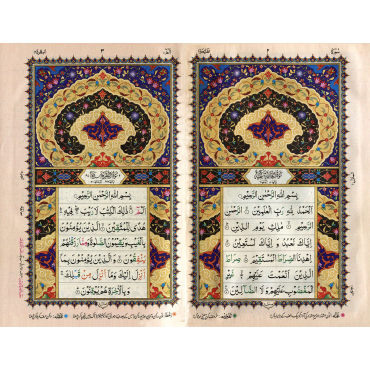 ٢
بِسْمِ اللّٰهِ الرَّحْمٰنِ الرَّحِيْمِ
اَلْحَمْدُ لِلّٰهِ رَبِّ الْعٰلَمِيْنَ الرَّحْمٰنِ
الرَّحِيْمِ مٰلِكِ يَوْمِ الدِّيْنِ
اِيَّاكَ نَعْبُدُ وَ اِيَّاكَ نَسْتَعِيْنُ
اِهْدِنَا الصِّرَاطَ الْمُسْتَقِيْمَ صِرَاطَ
الَّذِيْنَ اَنْعَمْتَ عَلَيْهِمْ غَيْرِ
الْمَغْضُوْبِ عَلَيْهِمْ وَلَا الضَّآلِّيْنَ
٣
بِسْمِ اللّٰهِ الرَّحْمٰنِ الرَّحِيْمِ
الٓمّٓ ذٰلِكَ الْكِتٰبُ لَا رَيْبَ فِيْهِ
هُدًى لِّلْمُتَّقِيْنَ الَّذِيْنَ يُؤْمِنُوْنَ
بِالْغَيْبِ وَيُقِيْمُوْنَ الصَّلٰوةَ وَمِمَّا رَزَقْنٰهُمْ
يُنْفِقُوْنَ وَالَّذِيْنَ يُؤْمِنُوْنَ بِمَآ
اُنْزِلَ اِلَيْكَ وَمَآ اُنْزِلَ مِنْ قَبْلِكَ
وَبِالْاٰخِرَةِ هُمْ يُوْقِنُوْنَ